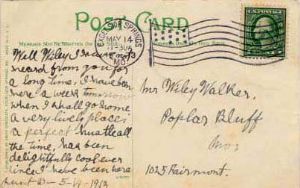 POST CARD
MESSAGE MAY BE WRITTEN ON THIS SIDE
EXCELSIOR SPRINGS
MAY 14
MO.
Well Wiley I have not
heard from you for
a long time, I have been
here a week tomorrow
when I shall go home
a very lively place.
a perfect
all
the time, has been
delightfully cool ever
since I have been here
Aunt
5-14-1913
Mr Wiley Walker.
Poplar Bluff
Mo.
1025 Fairmont.